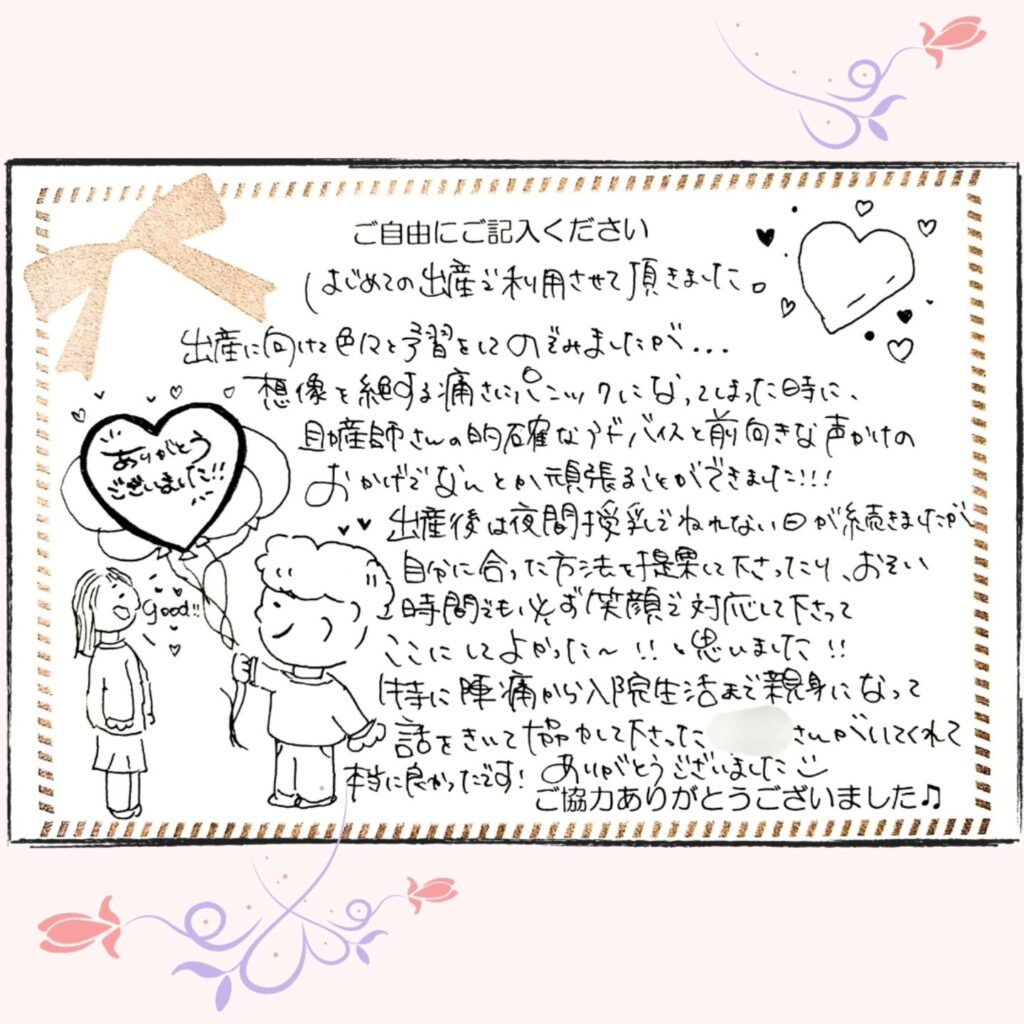 ご自由にご記入ください
はじめての出産で利用させて頂きました。
出産に向けて色々と予習をしてのぞみましたが...
想像を絶する痛さにパニックになってしまった時に、
助産師さんの的確なアドバイスと前向きな声かけの
おかげでなんとか頑張ることができました!!!
出産後は夜間授乳でねれない日が続きましたが
自分に合った方法を提案して下さったり、おそい
時間でも必ず笑顔で対応して下さって
ここにしてよかった〜!!と思いました!!
特に陣痛から入院生活まで親身になって
話をきいて協力して下さった
さんがいてくれて
本当に良かったです!
ありがとうございました
ご協力ありがとうございました♫
ありがとう
ございました!!
Good!!